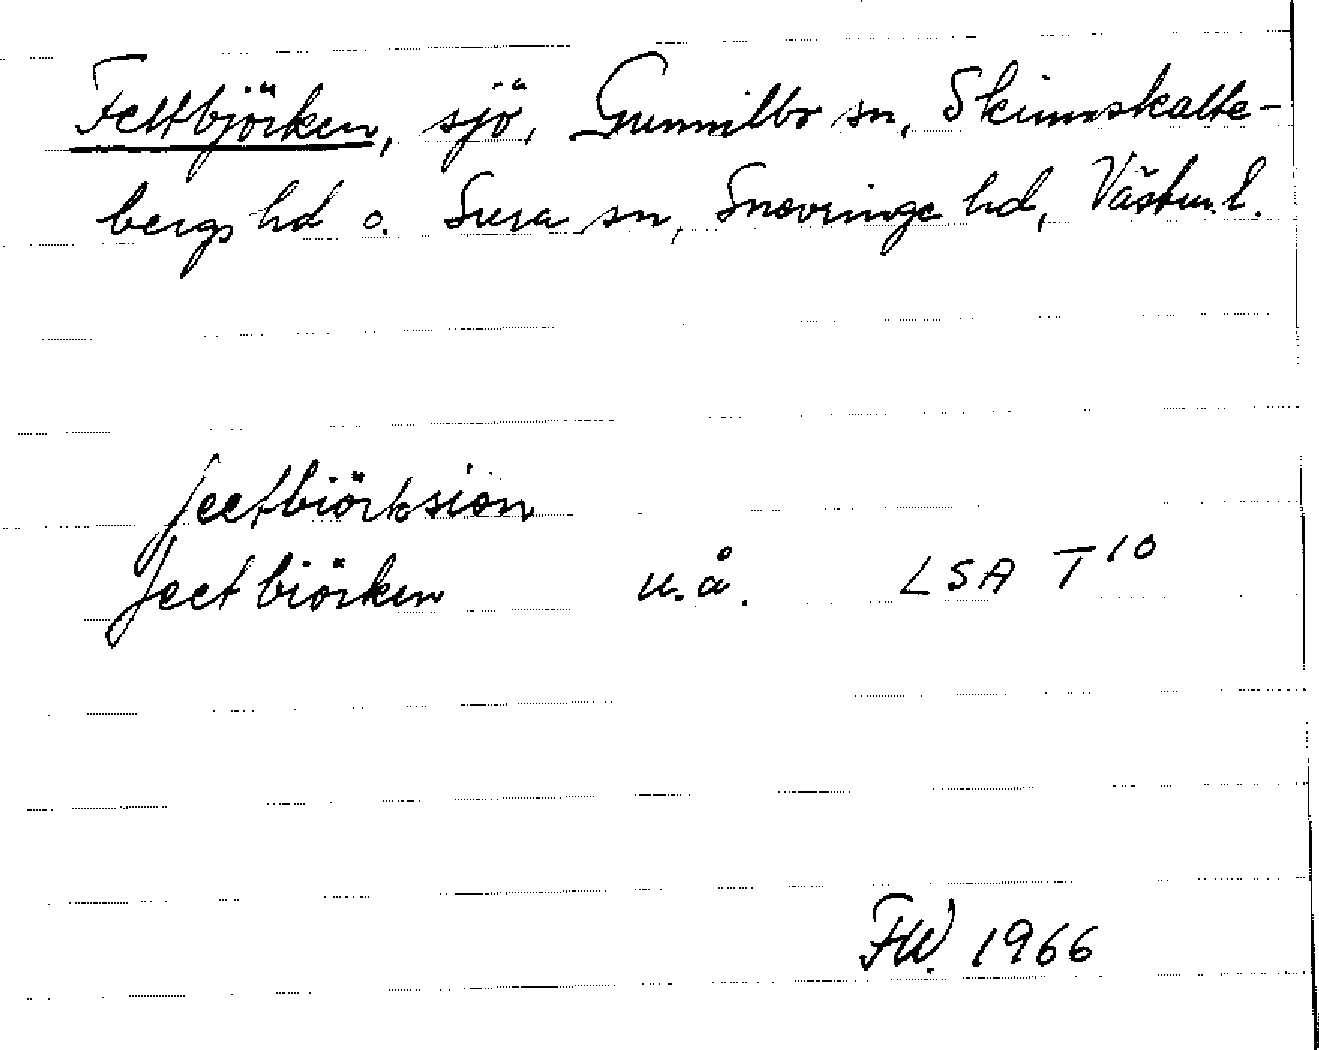 Fettbjörken, sjö, Gunnilbo sn, Skinnskatte-
bergs hd o. Sura sn, Snevringe hd, Västm.l.
feetbiörksiön
feetbiörken u.å. LSA T 10
FW. 1966